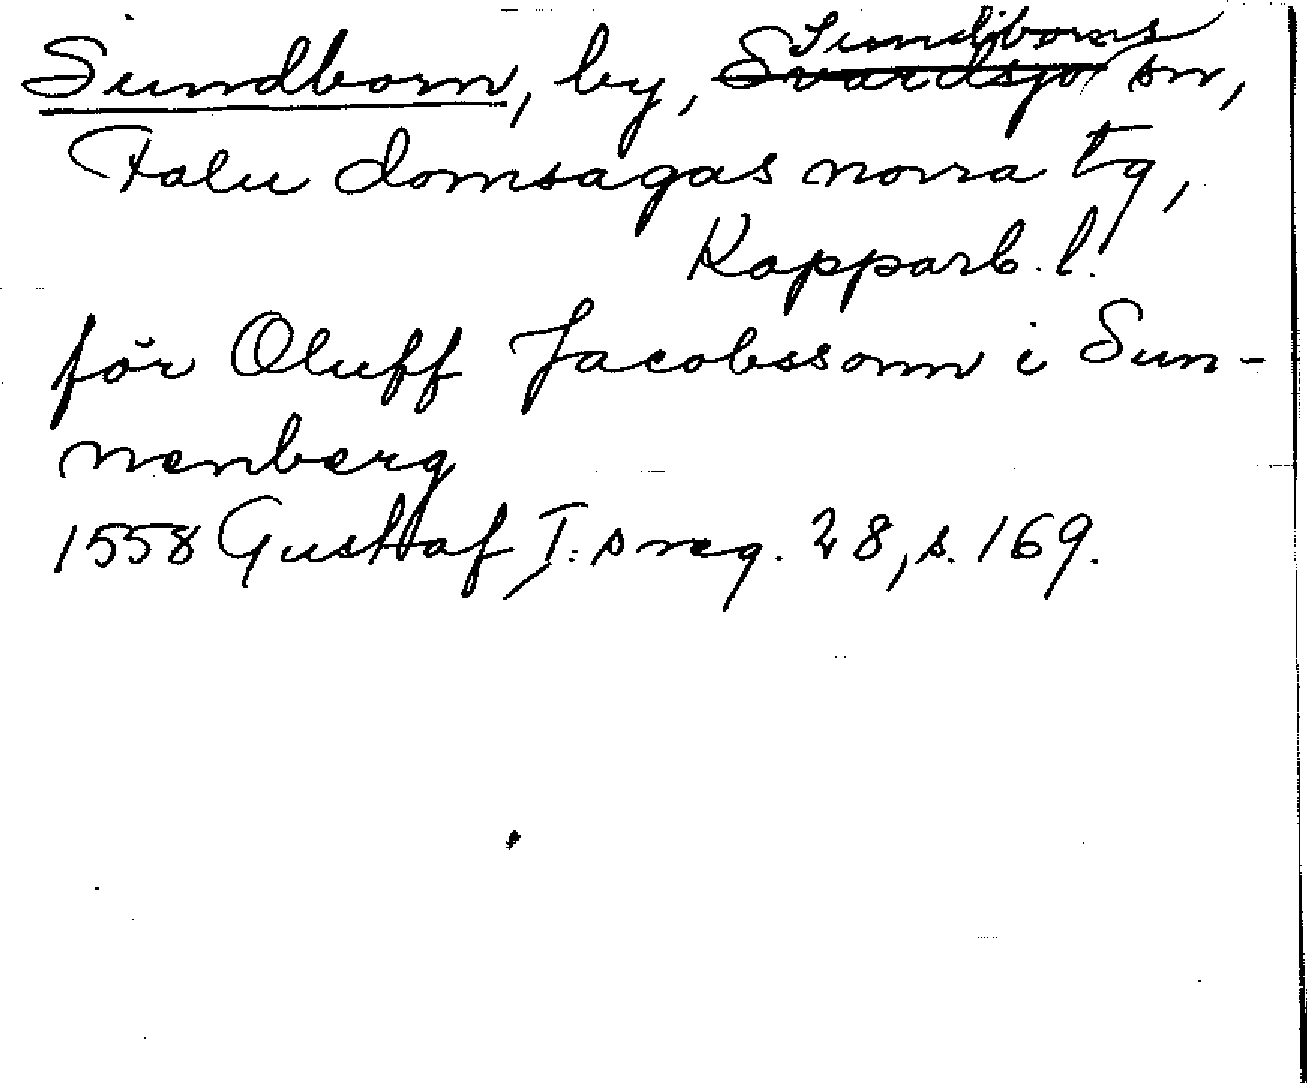 Sundborn, by, Sundborns sn,
Falu domsagas norra tg,
Kopparb. l.
för Oluff Jacobssonn i Sun-
nenberg
1558 Gustaf I:s reg. 28, s. 169.